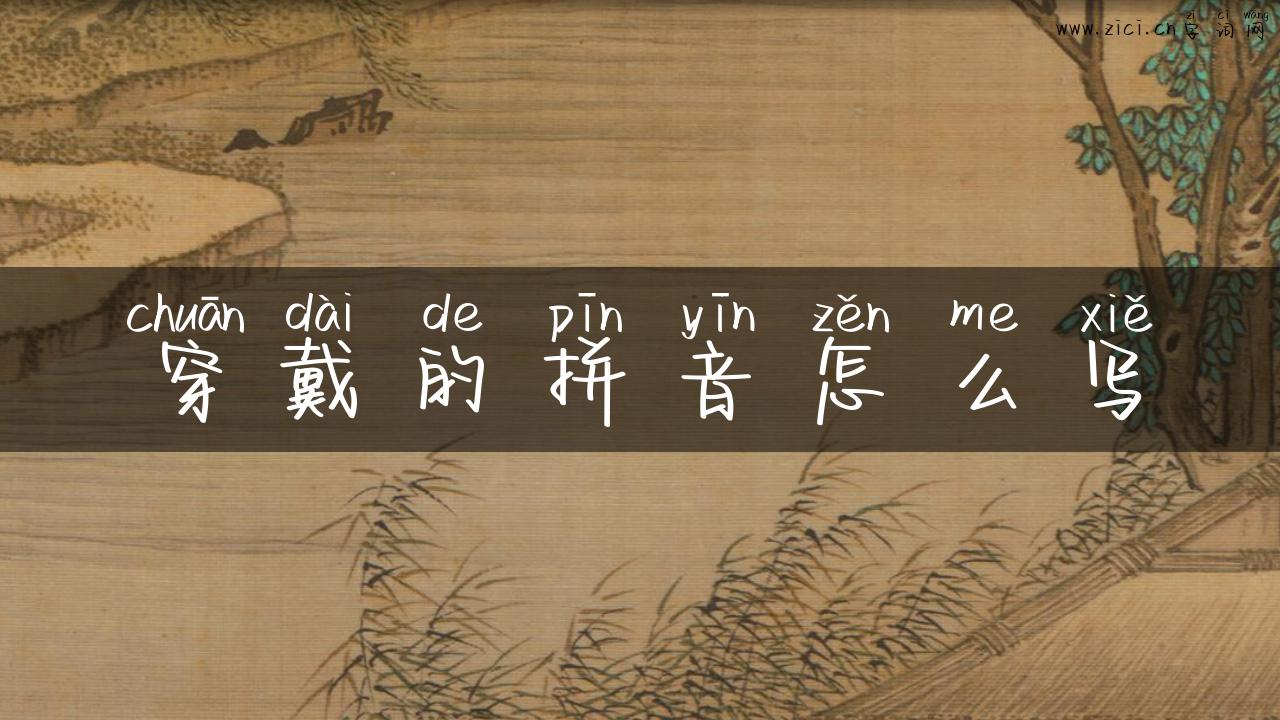 zì cí wǎng
www.zici.cn字词网
chuān dài de pīn yīn zěn me xiě
穿戴的拼音怎么写